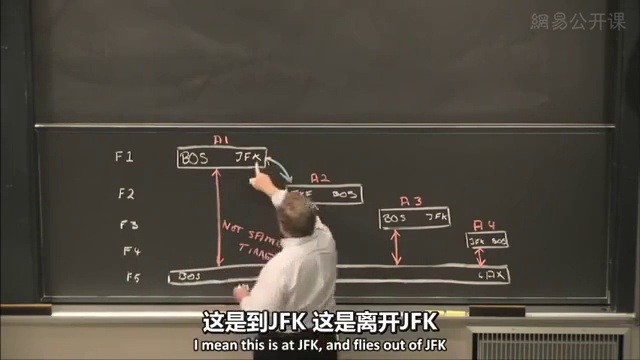 網易公开课
A1
F1 BOS JFK
A2
F2 BOS
A3
F3 BOS JFK
A4
NOT SAME
TIME
F4 JFK BOS
F5 BOS LAX
这是到JFK 这是离开JFK
I mean this is at JFK, and flies out of JFK